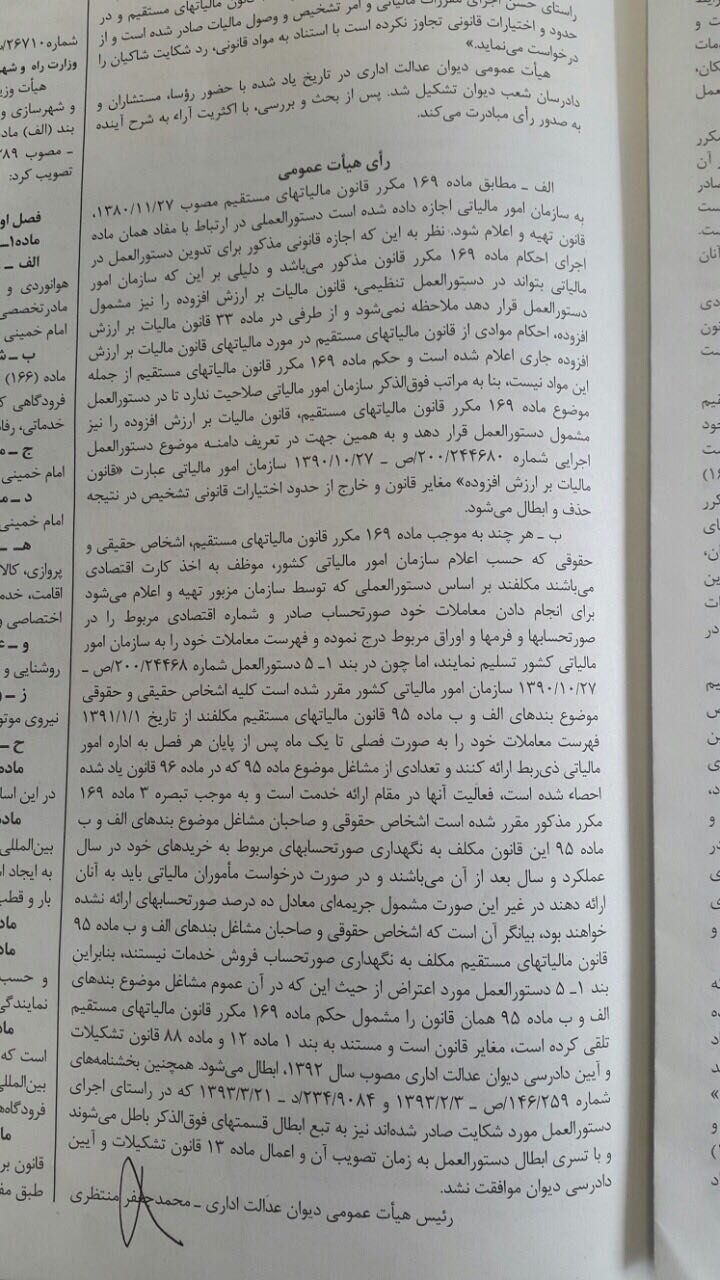 راستای حسن اجرای مقررات مالیاتی و امر تشخیص و وصول مالیات صادر شده است و از
حدود و اختیارات قانونی تجاوز نکرده است با استناد به مواد قانونی، رد شکایت شاکیان را
درخواست می‌نماید.»
هیأت عمومی دیوان عدالت اداری در تاریخ یاد شده با حضور رؤسا، مستشاران و
دادرسان شعب دیوان تشکیل شد. پس از بحث و بررسی، با اکثریت آراء به شرح آینده
به صدور رأی مبادرت می‌کند.
رأی هیأت عمومی
الف ـ مطابق ماده ۱۶۹ مکرر قانون مالیاتهای مستقیم مصوب ۱۳۸۰/۱۱/۲۷،
به سازمان امور مالیاتی اجازه داده شده است دستورالعملی در ارتباط با مفاد همان ماده
قانون تهیه و اعلام شود. نظر به این که اجازه قانونی مذکور برای تدوین دستورالعمل در
اجرای احکام ماده ۱۶۹ مکرر قانون مذکور می‌باشد و دلیلی بر این که سازمان امور
مالیاتی بتواند در دستورالعمل تنظیمی، قانون مالیات بر ارزش افزوده را نیز مشمول
دستورالعمل قرار دهد ملاحظه نمی‌شود و از طرفی در ماده ۳۳ قانون مالیات بر ارزش
افزوده، احکام موادی از قانون مالیاتهای مستقیم در مورد مالیاتهای قانون مالیات بر ارزش
افزوده جاری اعلام شده است و حکم ماده ۱۶۹ مکرر قانون مالیاتهای مستقیم از جمله
این مواد نیست، بنا به مراتب فوق‌الذکر سازمان امور مالیاتی صلاحیت ندارد تا در دستورالعمل
موضوع ماده ۱۶۹ مکرر قانون مالیاتهای مستقیم، قانون مالیات بر ارزش افزوده را نیز
مشمول دستورالعمل قرار دهد و به همین جهت در تعریف دامنه موضوع دستورالعمل
اجرایی شماره ۲۰۰/۲۴۴۶۸۰/ص ـ ۱۳۹۰/۱۰/۲۷ سازمان امور مالیاتی عبارت «قانون
مالیات بر ارزش افزوده» مغایر قانون و خارج از حدود اختیارات قانونی تشخیص در نتیجه
حذف و ابطال می‌شود.
ب ـ هر چند به موجب ماده ۱۶۹ مکرر قانون مالیاتهای مستقیم، اشخاص حقیقی و
حقوقی که حسب اعلام سازمان امور مالیاتی کشور، موظف به اخذ کارت اقتصادی
می‌باشند مکلفند بر اساس دستورالعملی که توسط سازمان مزبور تهیه و اعلام می‌شود
برای انجام دادن معاملات خود صورتحساب صادر و شماره اقتصادی مربوط را در
صورتحسابها و فرمها و اوراق مربوط درج نموده و فهرست معاملات خود را به سازمان امور
مالیاتی کشور تسلیم نمایند، اما چون در بند ۱ـ ۵ دستورالعمل شماره ۲۰۰/۲۴۴۶۸/ص ـ
۱۳۹۰/۱۰/۲۷ سازمان امور مالیاتی کشور مقرر شده است کلیه اشخاص حقیقی و حقوقی
موضوع بندهای الف و ب ماده ۹۵ قانون مالیاتهای مستقیم مکلفند از تاریخ ۱۳۹۱/۱/۱
فهرست معاملات خود را به صورت فصلی تا یک ماه پس از پایان هر فصل به اداره امور
مالیاتی ذی‌ربط ارائه کنند و تعدادی از مشاغل موضوع ماده ۹۵ که در ماده ۹۶ قانون یاد شده
احصاء شده است، فعالیت آنها در مقام ارائه خدمت است و به موجب تبصره ۳ ماده ۱۶۹
مکرر مذکور مقرر شده است اشخاص حقوقی و صاحبان مشاغل موضوع بندهای الف و ب
ماده ۹۵ این قانون مکلف به نگهداری صورتحسابهای مربوط به خریدهای خود در سال
عملکرد و سال بعد از آن می‌باشند و در صورت درخواست مأموران مالیاتی باید به آنان
ارائه دهند در غیر این صورت مشمول جریمه‌ای معادل ده درصد صورتحسابهای ارائه نشده
خواهند بود، بیانگر آن است که اشخاص حقوقی و صاحبان مشاغل بندهای الف و ب ماده ۹۵
قانون مالیاتهای مستقیم مکلف به نگهداری صورتحساب فروش خدمات نیستند، بنابراین
بند ۱ـ ۵ دستورالعمل مورد اعتراض از حیث این که در آن عموم مشاغل موضوع بندهای
الف و ب ماده ۹۵ همان قانون را مشمول حکم ماده ۱۶۹ مکرر قانون مالیاتهای مستقیم
تلقی کرده است، مغایر قانون است و مستند به بند ۱ ماده ۱۲ و ماده ۸۸ قانون تشکیلات
و آیین دادرسی دیوان عدالت اداری مصوب سال ۱۳۹۲، ابطال می‌شود. همچنین بخشنامه‌های
شماره ۱۴۶/۲۵۹/ص ـ ۱۳۹۳/۲/۳ و ۲۳۴/۹۰۸۴/د ـ ۱۳۹۳/۳/۲۱ که در راستای اجرای
دستورالعمل مورد شکایت صادر شده‌اند نیز به تبع ابطال قسمتهای فوق‌الذکر باطل می‌شوند
و با تسری ابطال دستورالعمل به زمان تصویب آن و اعمال ماده ۱۳ قانون تشکیلات و آیین
دادرسی دیوان موافقت نشد.
رئیس هیأت عمومی دیوان عدالت اداری ـ محمدجعفر منتظری
وزارت راه و شهر
هیأت وزی
و شهرسازی و
بند (الف) ماد
ـ مصوب ۸۹
تصویب کرد:
فصل او
ماده۱ـ
الف ـ
هوانوردی و
مادرتخصصی
امام خمینی
ب ـ ش
ماده (۱۶۶)
فرودگاهی ک
خدماتی، رفا
ج ـ م
امام خمینی
د ـ م
امام خمینی
هـ ـ
پروازی، کالا
اقامت، خدم
اختصاصی و
و ـ ع
روشنایی و
ز ـ
نیروی موتو
ح ـ
ماده
در این اسا
ماده
بین‌المللی
به ایجاد ا
بار و قطب
ماد
ماد
و حسب
نمایندگی
ماد
است که
بین‌المللی
فرودگاه‌ه
ما
قانون بر
طبق مف